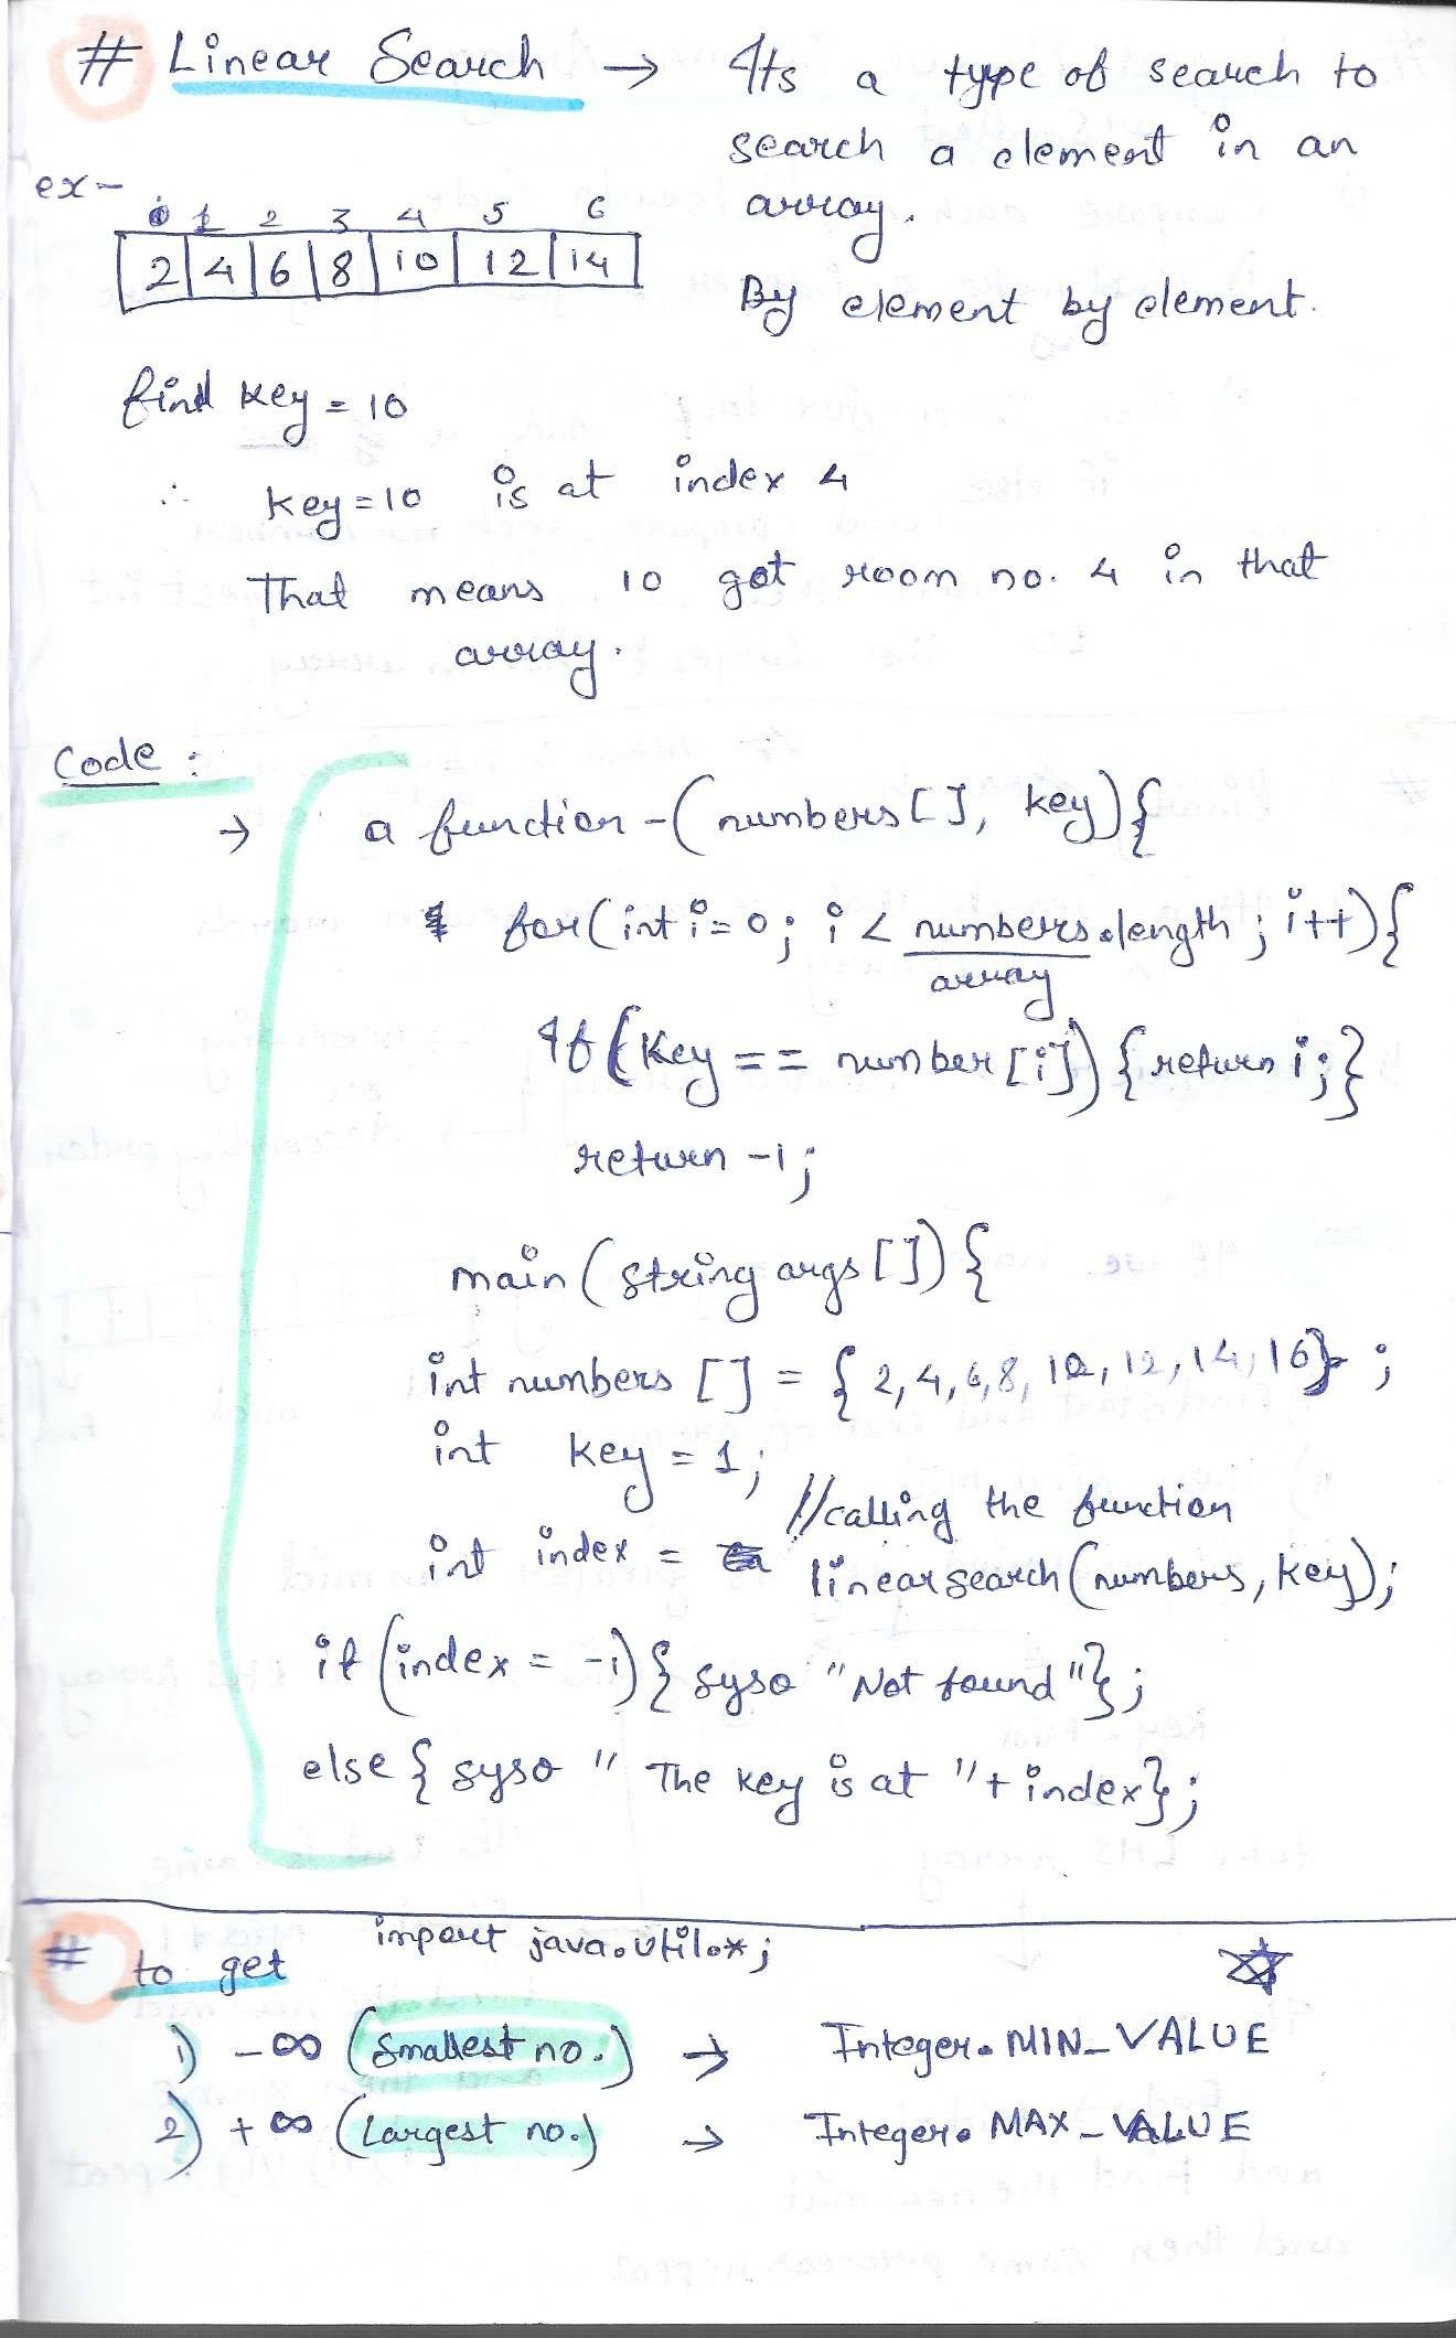 # Linear Search → Its a type of search to
search a element in an
array.
By element by element.
ex-
0 1 2 3 4 5 6
2 4 6 8 10 12 14
find key = 10
∴ key = 10 is at index 4
That means 10 got room no. 4 in that
array.
Code :
→ a function - (numbers [ ], key) {
for (int i = 0; i < numbers.length ; i++) {
array
If (Key == number [i]) { return i; }
return -1;
main (string args [ ]) {
int numbers [ ] = { 2, 4, 6, 8, 10, 12, 14, 16 } ;
int key = 1;
//calling the function
int index = linearsearch (numbers, key);
if (index = -1) { syso "Not found" } ;
else { syso " The key is at " + index } ;
# to get import java.util.* ;
1) - ∞ (Smallest no.) → Integer. MIN_VALUE
2) + ∞ (Largest no.) → Integer. MAX_VALUE